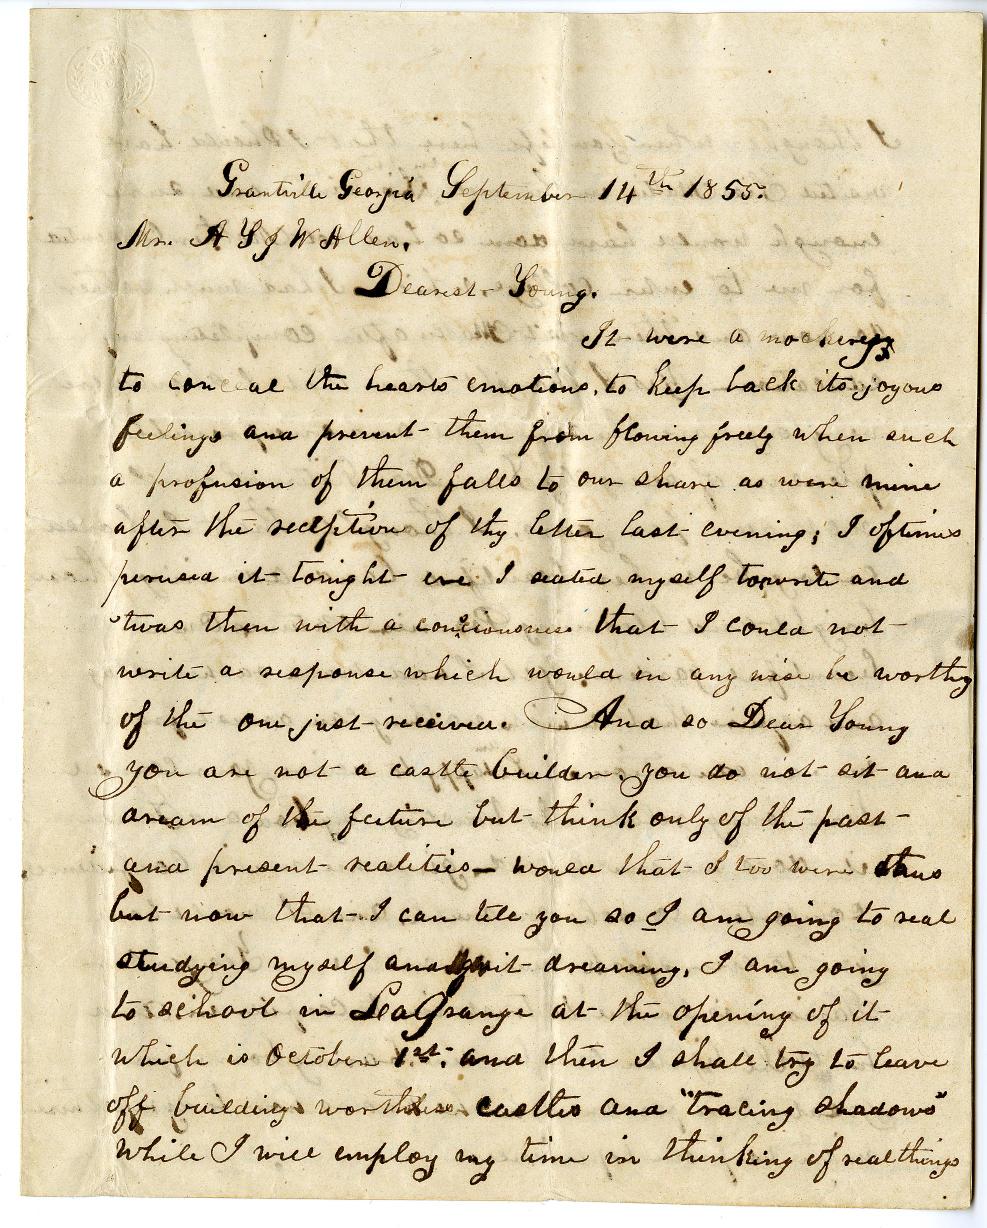 Grantville Georgia September 14th 1855.
Mr. A Y J W Allen.
Dearest Young.
It were a mockery
to conceal the hearts emotions, to keep back its joyous
feelings and prevent them from flowing freely when such
a profusion of them falls to our share as were mine
after the reception of thy letter last evening; I oftimes
perused it tonight ere I seated myself to write and
'twas then with a conciousness that I could not
write a response which would in any wise be worthy
of the one just received. And so Dear Young
you are not a castle builder, you do not sit and
dream of the future but think only of the past
and present realities— would that I too were thus
but now that I can tell you so I am going to real
studying myself and quit dreaming, I am going
to school in LaGrange at the opening of it
which is October 1st. and then I shall try to leave
off building worthless castles and "tracing shadows"
while I will employ my time in thinking of real things